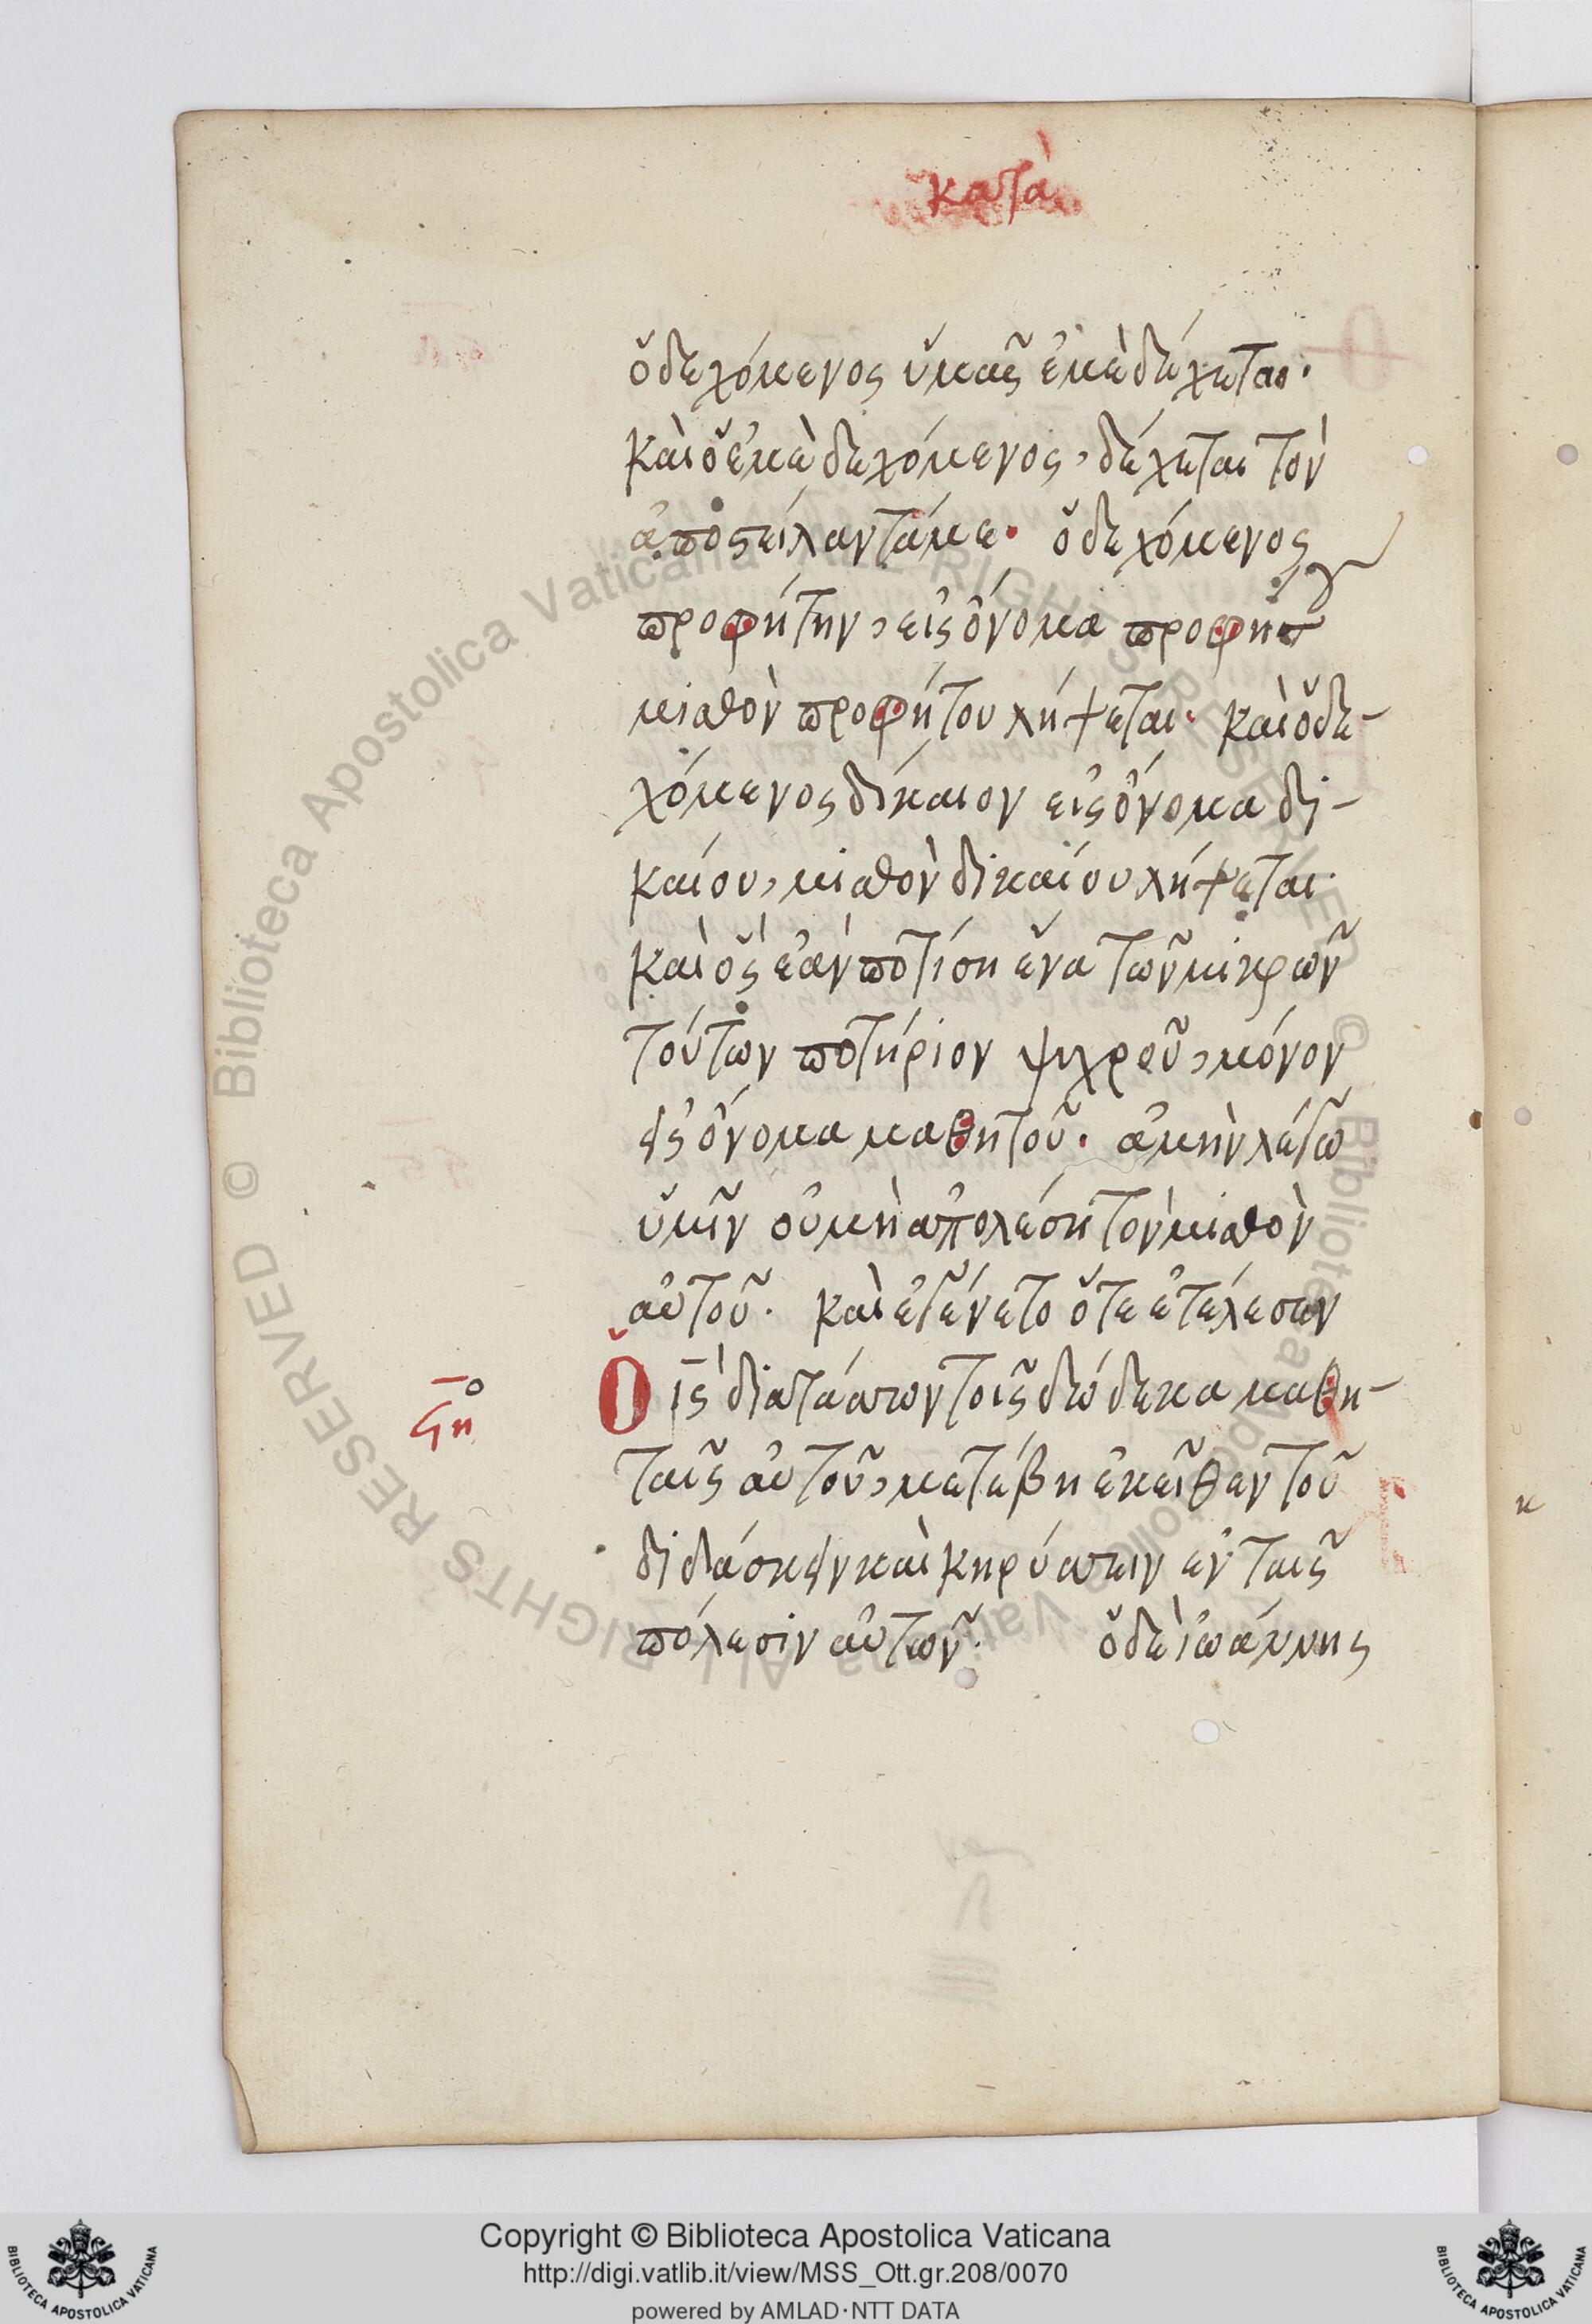 κατὰ
ὁ δεχόμενος ὑμᾶς ἐμὲ δέχεται·
καὶ ὁ ἐμὲ δεχόμενος, δέχεται τὸν
ἀποστείλαντά με· ὁ δεχόμενος
προφήτην, εἰς ὄνομα προφήτου
μισθὸν προφήτου λήψεται· καὶ ὁ δε-
χόμενος δίκαιον εἰς ὄνομα δι-
καίου, μισθὸν δικαίου λήψεται·
καὶ ὃς ἐὰν ποτίση ἕνα τῶν μικρῶν
τούτων ποτήριον ψιχροῦ, μόνον
εἰς ὄνομα μαθητοῦ· ἀμὴν λέγω
ὑμῖν οὐ μὴ ἀπολέση τὸν μισθὸν
αὐτοῦ· καὶ ἐγένετο ὅτε ἐτέλεσεν
Ὁ ις διατάσσων τοῖς δώδεκα μαθη-
ϟη
ταῖς αὐτοῦ, μετέβη ἐκεῖθεν τοῦ
διδάσκειν καὶ κηρύσσειν ἐν ταῖς
πόλεσιν αὐτῶν· ὁ δὲ ἰωάννης
© Biblioteca Apostolica Vaticana ALL RIGHTS RESERVED
Copyright © Biblioteca Apostolica Vaticana
http://digi.vatlib.it/view/MSS_Ott.gr.208/0070
powered by AMLAD·NTT DATA
BIBLIOTECA APOSTOLICA VATICANA
BIBLIOTECA APOSTOLICA VATICANA